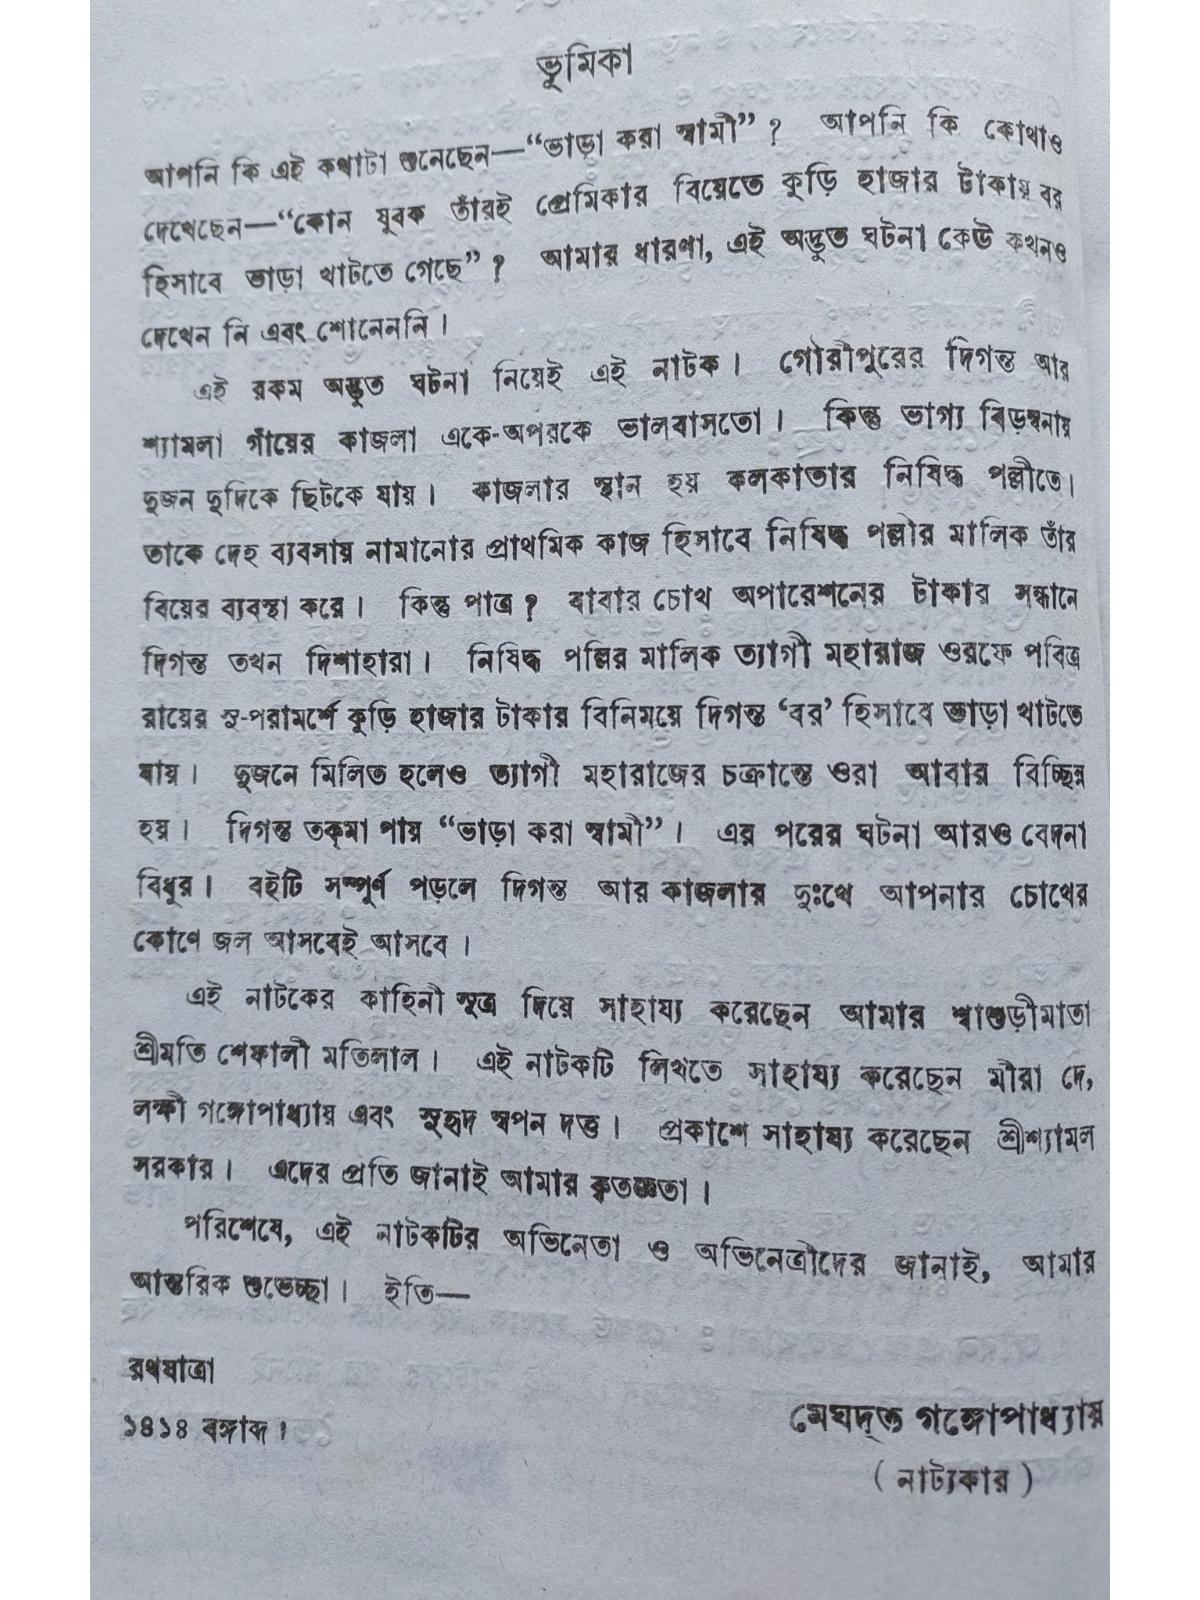 ভূমিকা
আপনি কি এই কথাটা শুনেছেন—“ভাড়া করা স্বামী” ? আপনি কি কোথাও
দেখেছেন—“কোন যুবক তাঁরই প্রেমিকার বিয়েতে কুড়ি হাজার টাকায় বর
হিসাবে ভাড়া খাটতে গেছে” ? আমার ধারণা, এই অদ্ভুত ঘটনা কেউ কখনও
দেখেন নি এবং শোনেননি ।
এই রকম অদ্ভুত ঘটনা নিয়েই এই নাটক । গৌরীপুরের দিগন্ত আর
শ্যামলা গাঁয়ের কাজলা একে-অপরকে ভালবাসতো । কিন্তু ভাগ্য বিড়ম্বনায়
দুজন দুদিকে ছিটকে যায় । কাজলার স্থান হয় কলকাতার নিষিদ্ধ পল্লীতে।
তাকে দেহ ব্যবসায় নামানোর প্রাথমিক কাজ হিসাবে নিষিদ্ধ পল্লীর মালিক তাঁর
বিয়ের ব্যবস্থা করে । কিন্তু পাত্র ? বাবার চোখ অপারেশনের টাকার সন্ধানে
দিগন্ত তখন দিশাহারা । নিষিদ্ধ পল্লির মালিক ত্যাগী মহারাজ ওরফে পবিত্র
রায়ের সু-পরামর্শে কুড়ি হাজার টাকার বিনিময়ে দিগন্ত ‘বর’ হিসাবে ভাড়া খাটতে
যায় । দুজনে মিলিত হলেও ত্যাগী মহারাজের চক্রান্তে ওরা আবার বিচ্ছিন্ন
হয় । দিগন্ত তকমা পায় “ভাড়া করা স্বামী” । এর পরের ঘটনা আরও বেদনা
বিধুর । বইটি সম্পূর্ণ পড়লে দিগন্ত আর কাজলার দুঃখে আপনার চোখের
কোণে জল আসবেই আসবে ।
এই নাটকের কাহিনী সূত্র দিয়ে সাহায্য করেছেন আমার শ্বাশুড়ীমাতা
শ্রীমতি শেফালী মতিলাল । এই নাটকটি লিখতে সাহায্য করেছেন মীরা দে,
লক্ষী গঙ্গোপাধ্যায় এবং সুহৃদ স্বপন দত্ত । প্রকাশে সাহায্য করেছেন শ্রীশ্যামল
সরকার । এদের প্রতি জানাই আমার কৃতজ্ঞতা ।
পরিশেষে, এই নাটকটির অভিনেতা ও অভিনেত্রীদের জানাই, আমার
আন্তরিক শুভেচ্ছা । ইতি—
রথযাত্রা
১৪১৪ বঙ্গাব্দ ।
মেঘদূত গঙ্গোপাধ্যায়
( নাট্যকার )